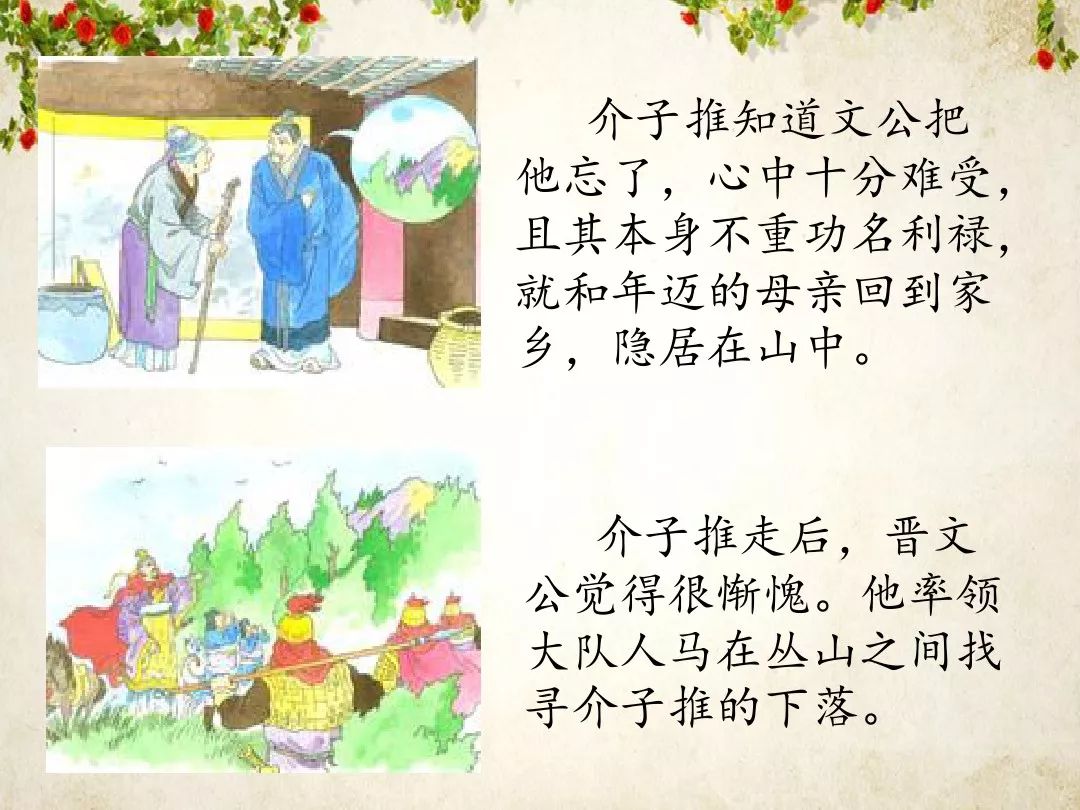 介子推知道文公把
他忘了，心中十分难受，
且其本身不重功名利禄，
就和年迈的母亲回到家
乡，隐居在山中。
介子推走后，晋文
公觉得很惭愧。他率领
大队人马在丛山之间找
寻介子推的下落。